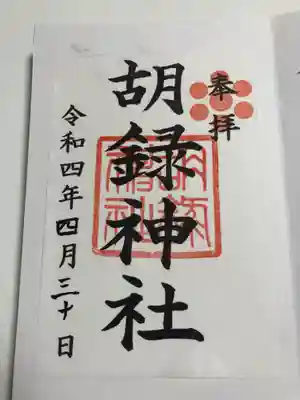 奉拝
胡録神社
令和四年四月三十日